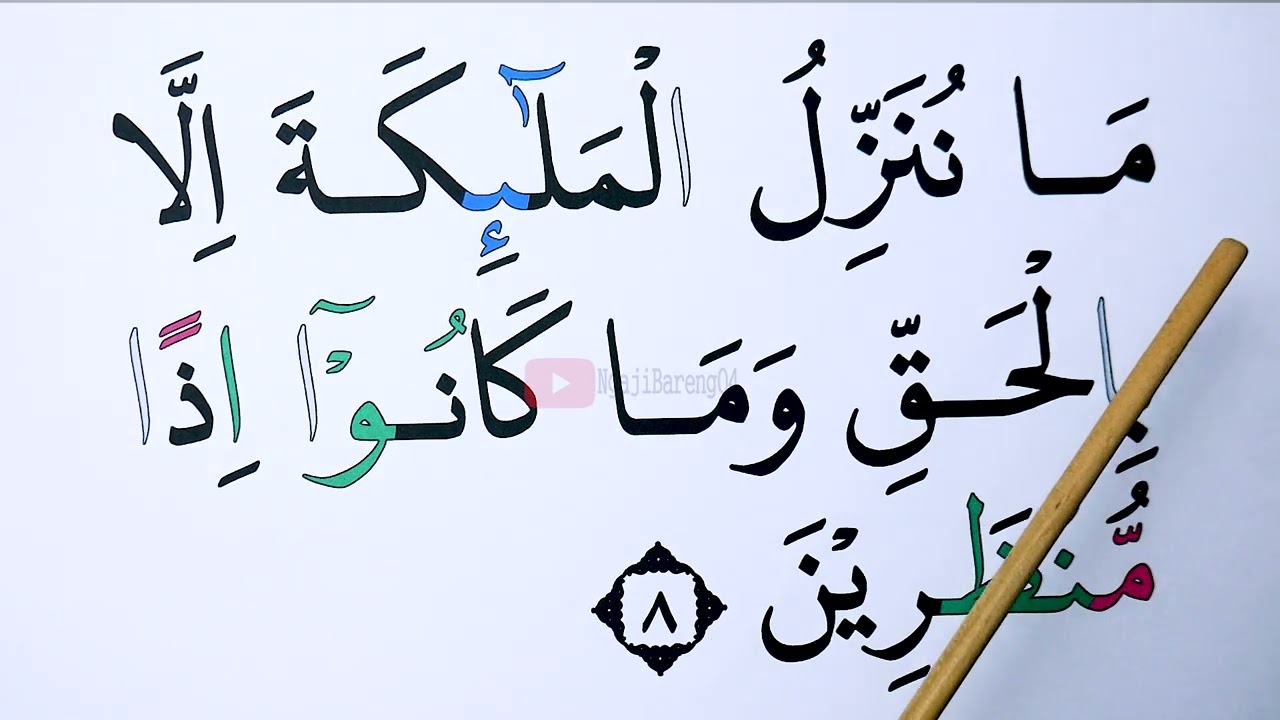 مَا نُنَزِّلُ الْمَلٰۤىِٕكَةَ اِلَّا
بِالْحَقِّ وَمَا كَانُوْٓا اِذًا
NgajiBareng04
مُّنْظَرِيْنَ ٨